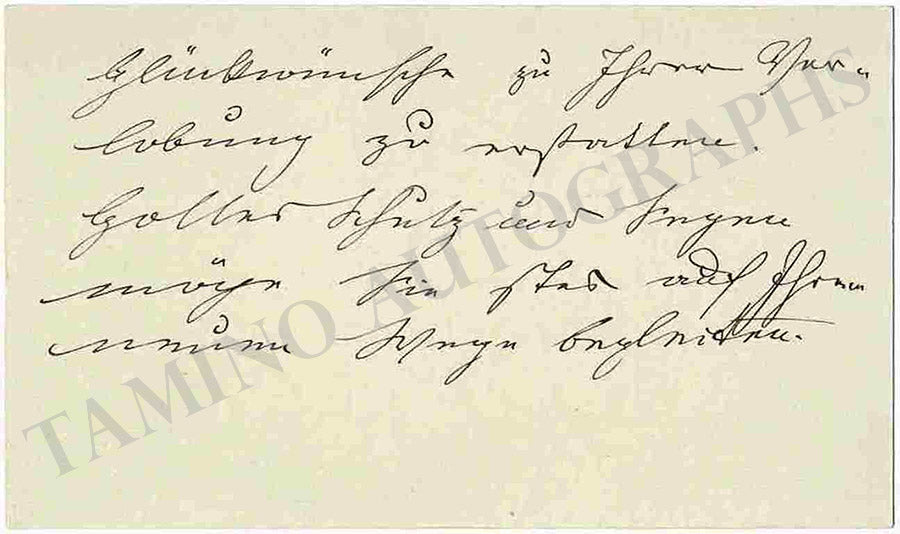 Glückwünsche zu Ihrer Ver-
lobung zu erstatten.
Gottes Schutz und Segen
möge Sie stes auf Ihrem
neuen Wege begleiten.
TAMINO AUTOGRAPHS